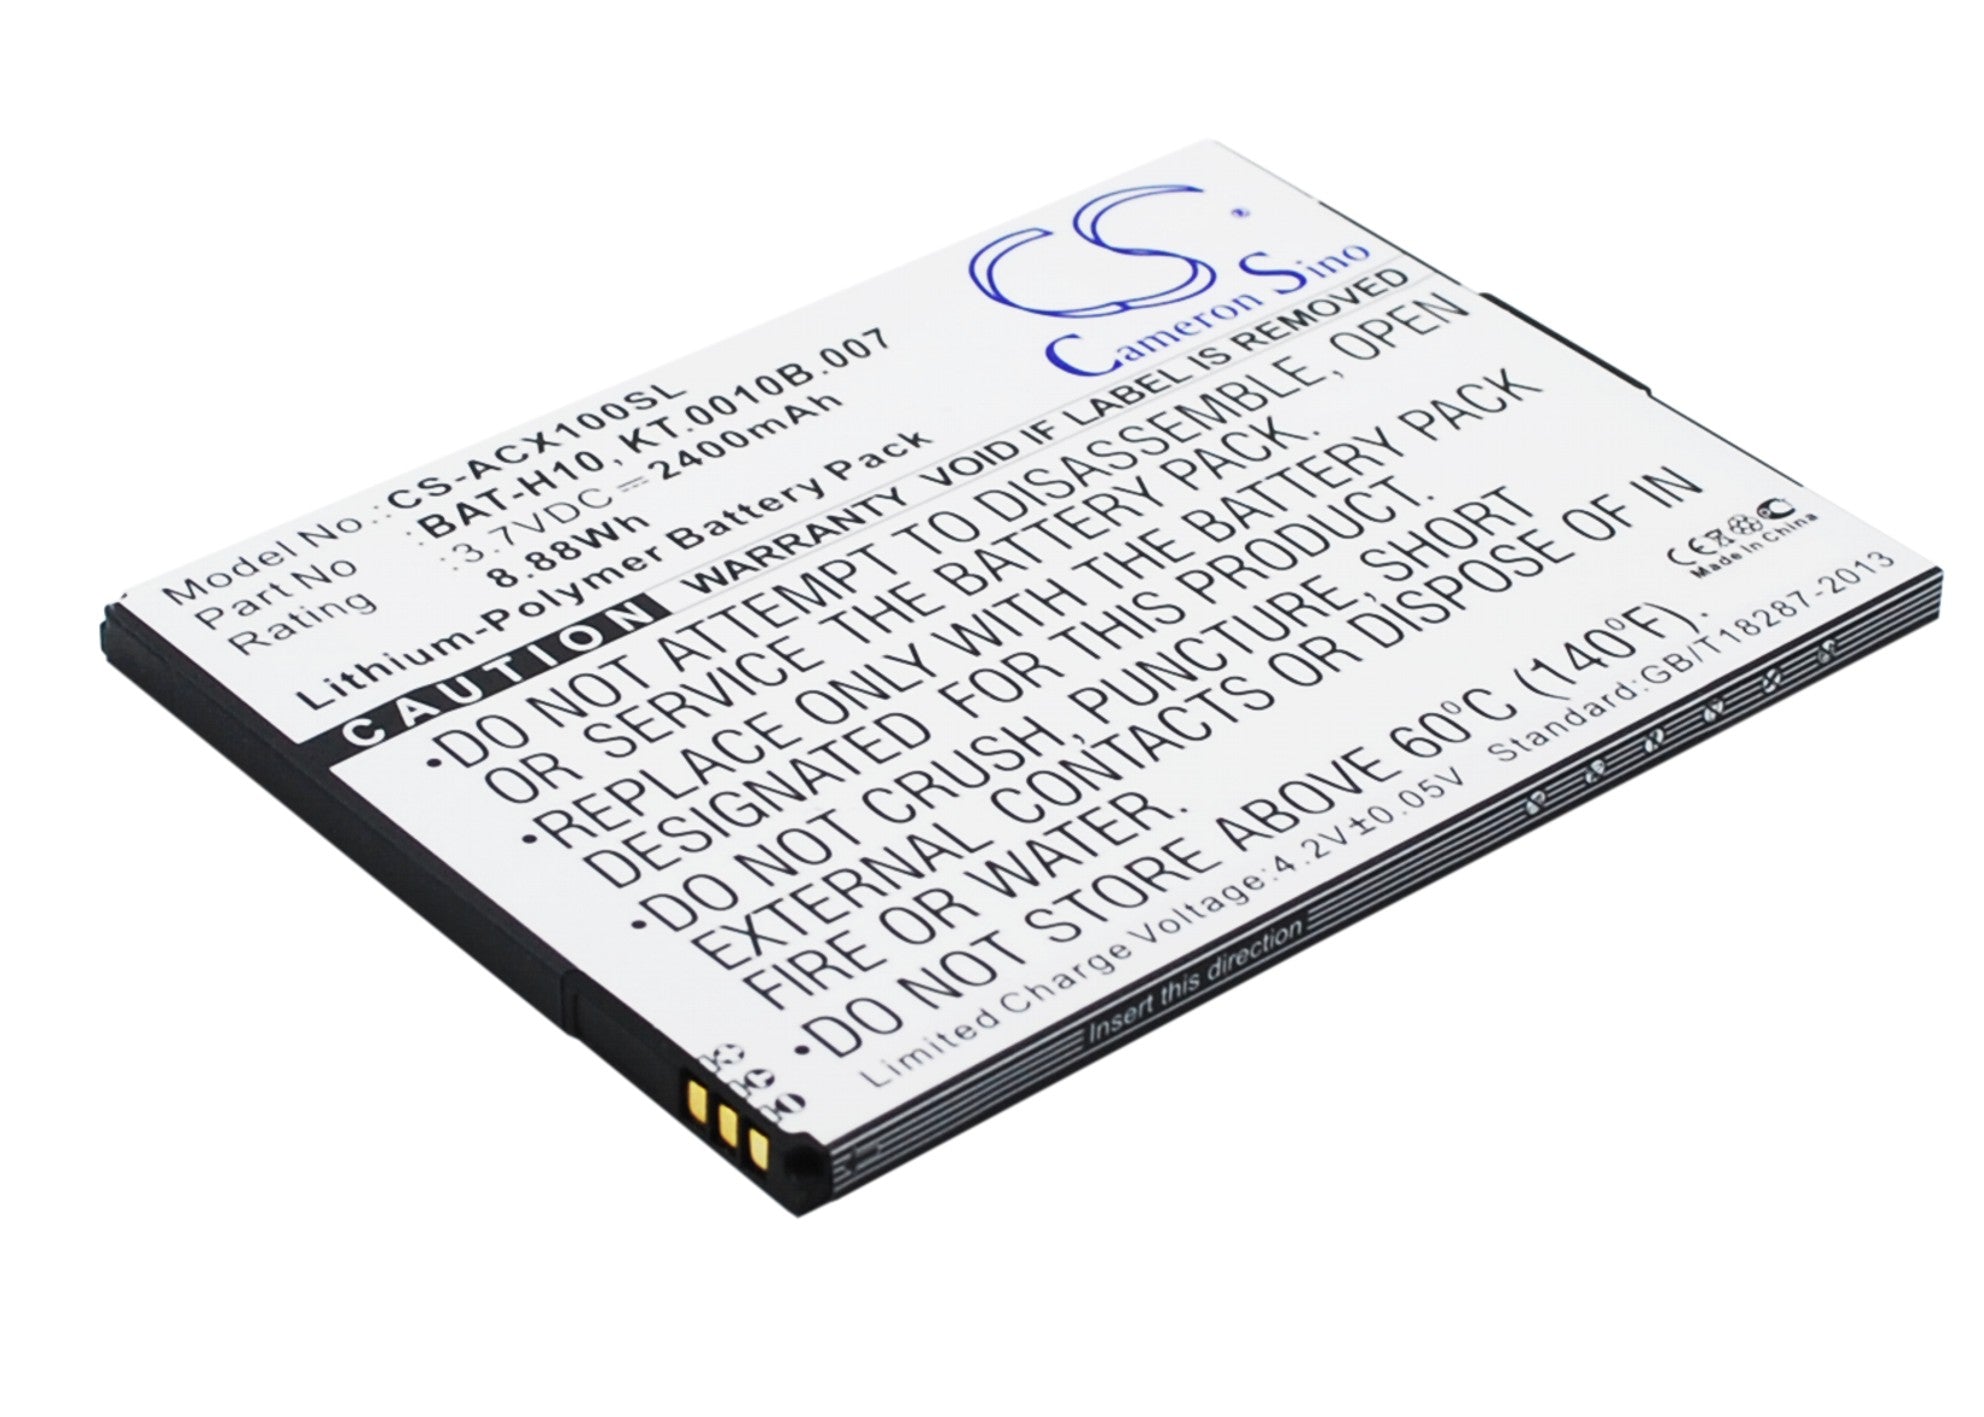 CS®
Cameron Sino
Model No.:CS-ACX100SL
Part No :BAT-H10, KT.0010B.007
Rating :3.7VDC⎓2400mAh
8.88Wh
Lithium-Polymer Battery Pack
CAUTION WARRANTY VOID IF LABEL IS REMOVED
•DO NOT ATTEMPT TO DISASSEMBLE, OPEN
OR SERVICE THE BATTERY PACK.
•REPLACE ONLY WITH THE BATTERY PACK
DESIGNATED FOR THIS PRODUCT.
•DO NOT CRUSH, PUNCTURE, SHORT
EXTERNAL CONTACTS OR DISPOSE OF IN
FIRE OR WATER.
•DO NOT STORE ABOVE 60°C (140°F).
CE
Made in China
Limited Charge Voltage:4.2V±0.05V Standard:GB/T18287-2013
Insert this direction